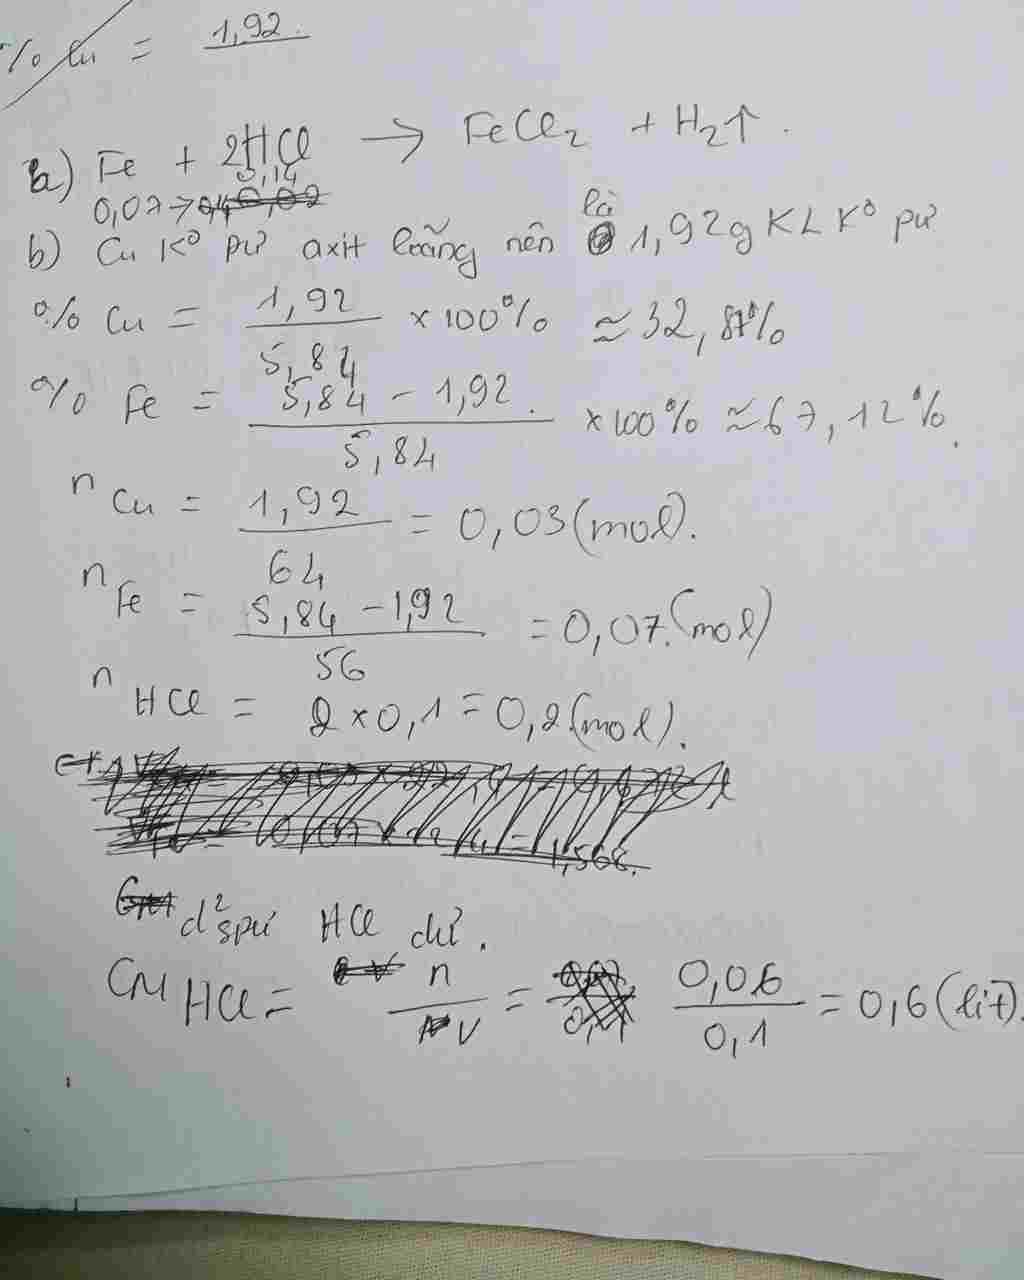 % Cu = 1,92
a) Fe + 2HCl → FeCl2 + H2↑.
0,07 → 0,14
b) Cu K° pư axit loãng nên là 1,92g KL K° pư
% Cu = 1,92 / 5,84 × 100% ≈ 32,87%
% Fe = 5,84 - 1,92 / 5,84 × 100% ≈ 67,12%.
n Cu = 1,92 / 64 = 0,03 (mol).
n Fe = 5,84 - 1,92 / 56 = 0,07 (mol)
n HCl = 2 × 0,1 = 0,2 (mol).
d² spư HCl dư.
CM HCl = n / V = 0,06 / 0,1 = 0,6 (lít).